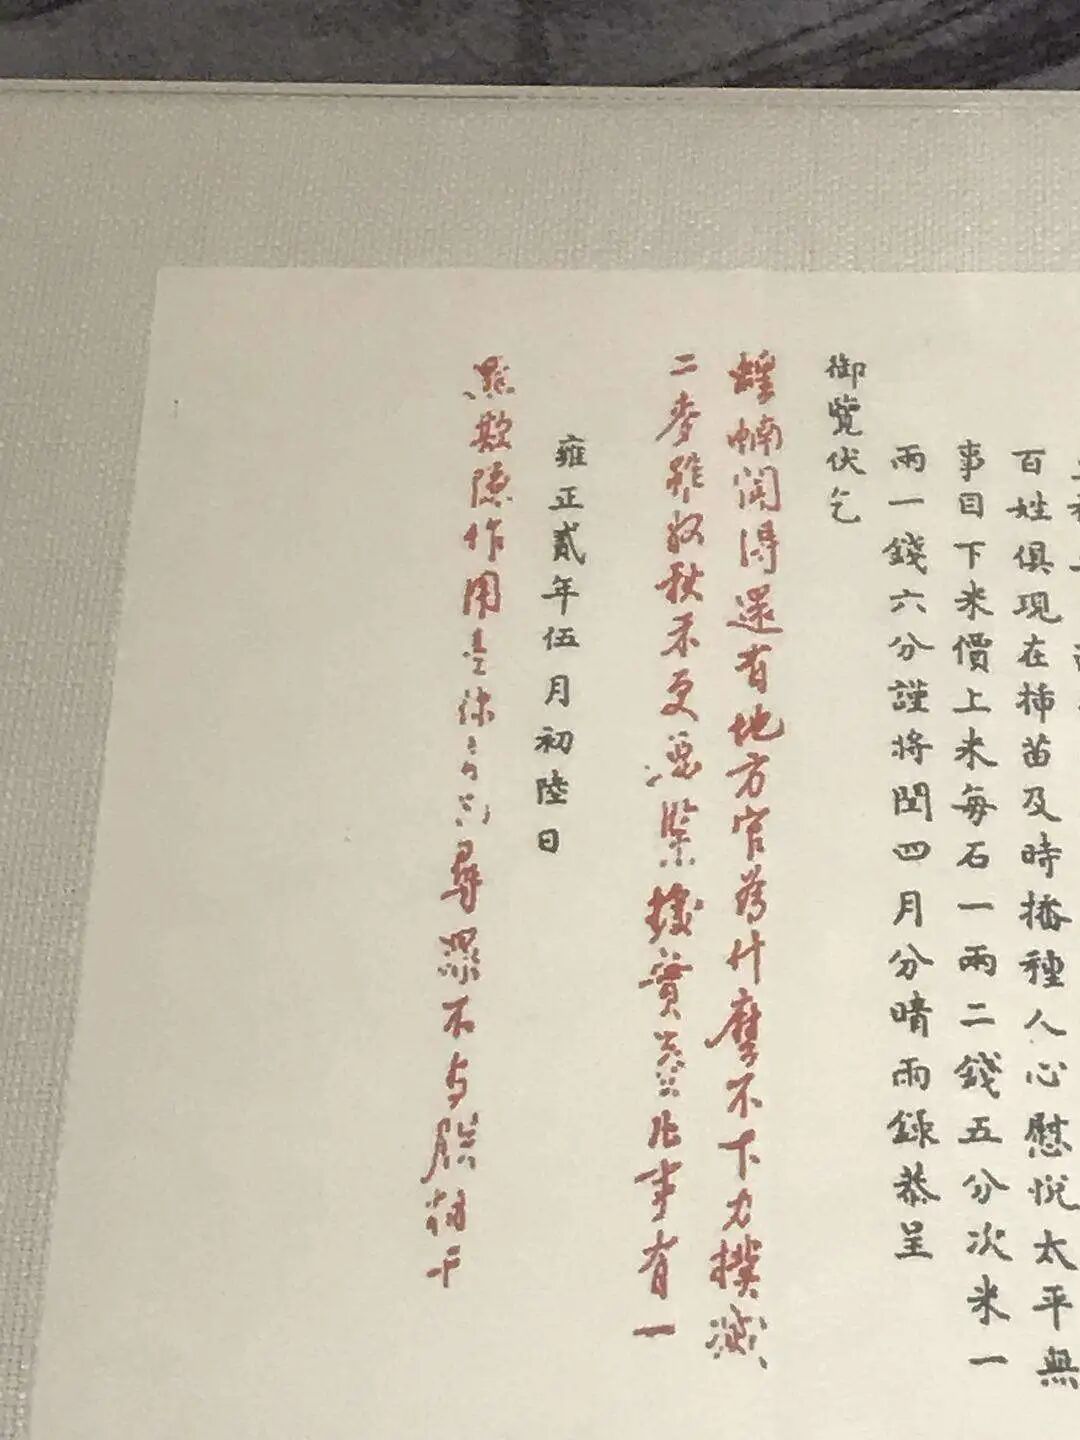 百姓俱現在插苗及時播種人心慰悅太平無
事目下米價上米每石一兩二錢五分次米一
兩一錢六分謹將閏四月分晴雨錄恭呈
御覽伏乞
蝗蝻聞得還有地方官為什麼不下力撲滅
二麥雖收秋禾更要緊據實奏凡事有一
雍正貳年伍月初陸日
點欺隱作用是你自己尋罪不与朕相干